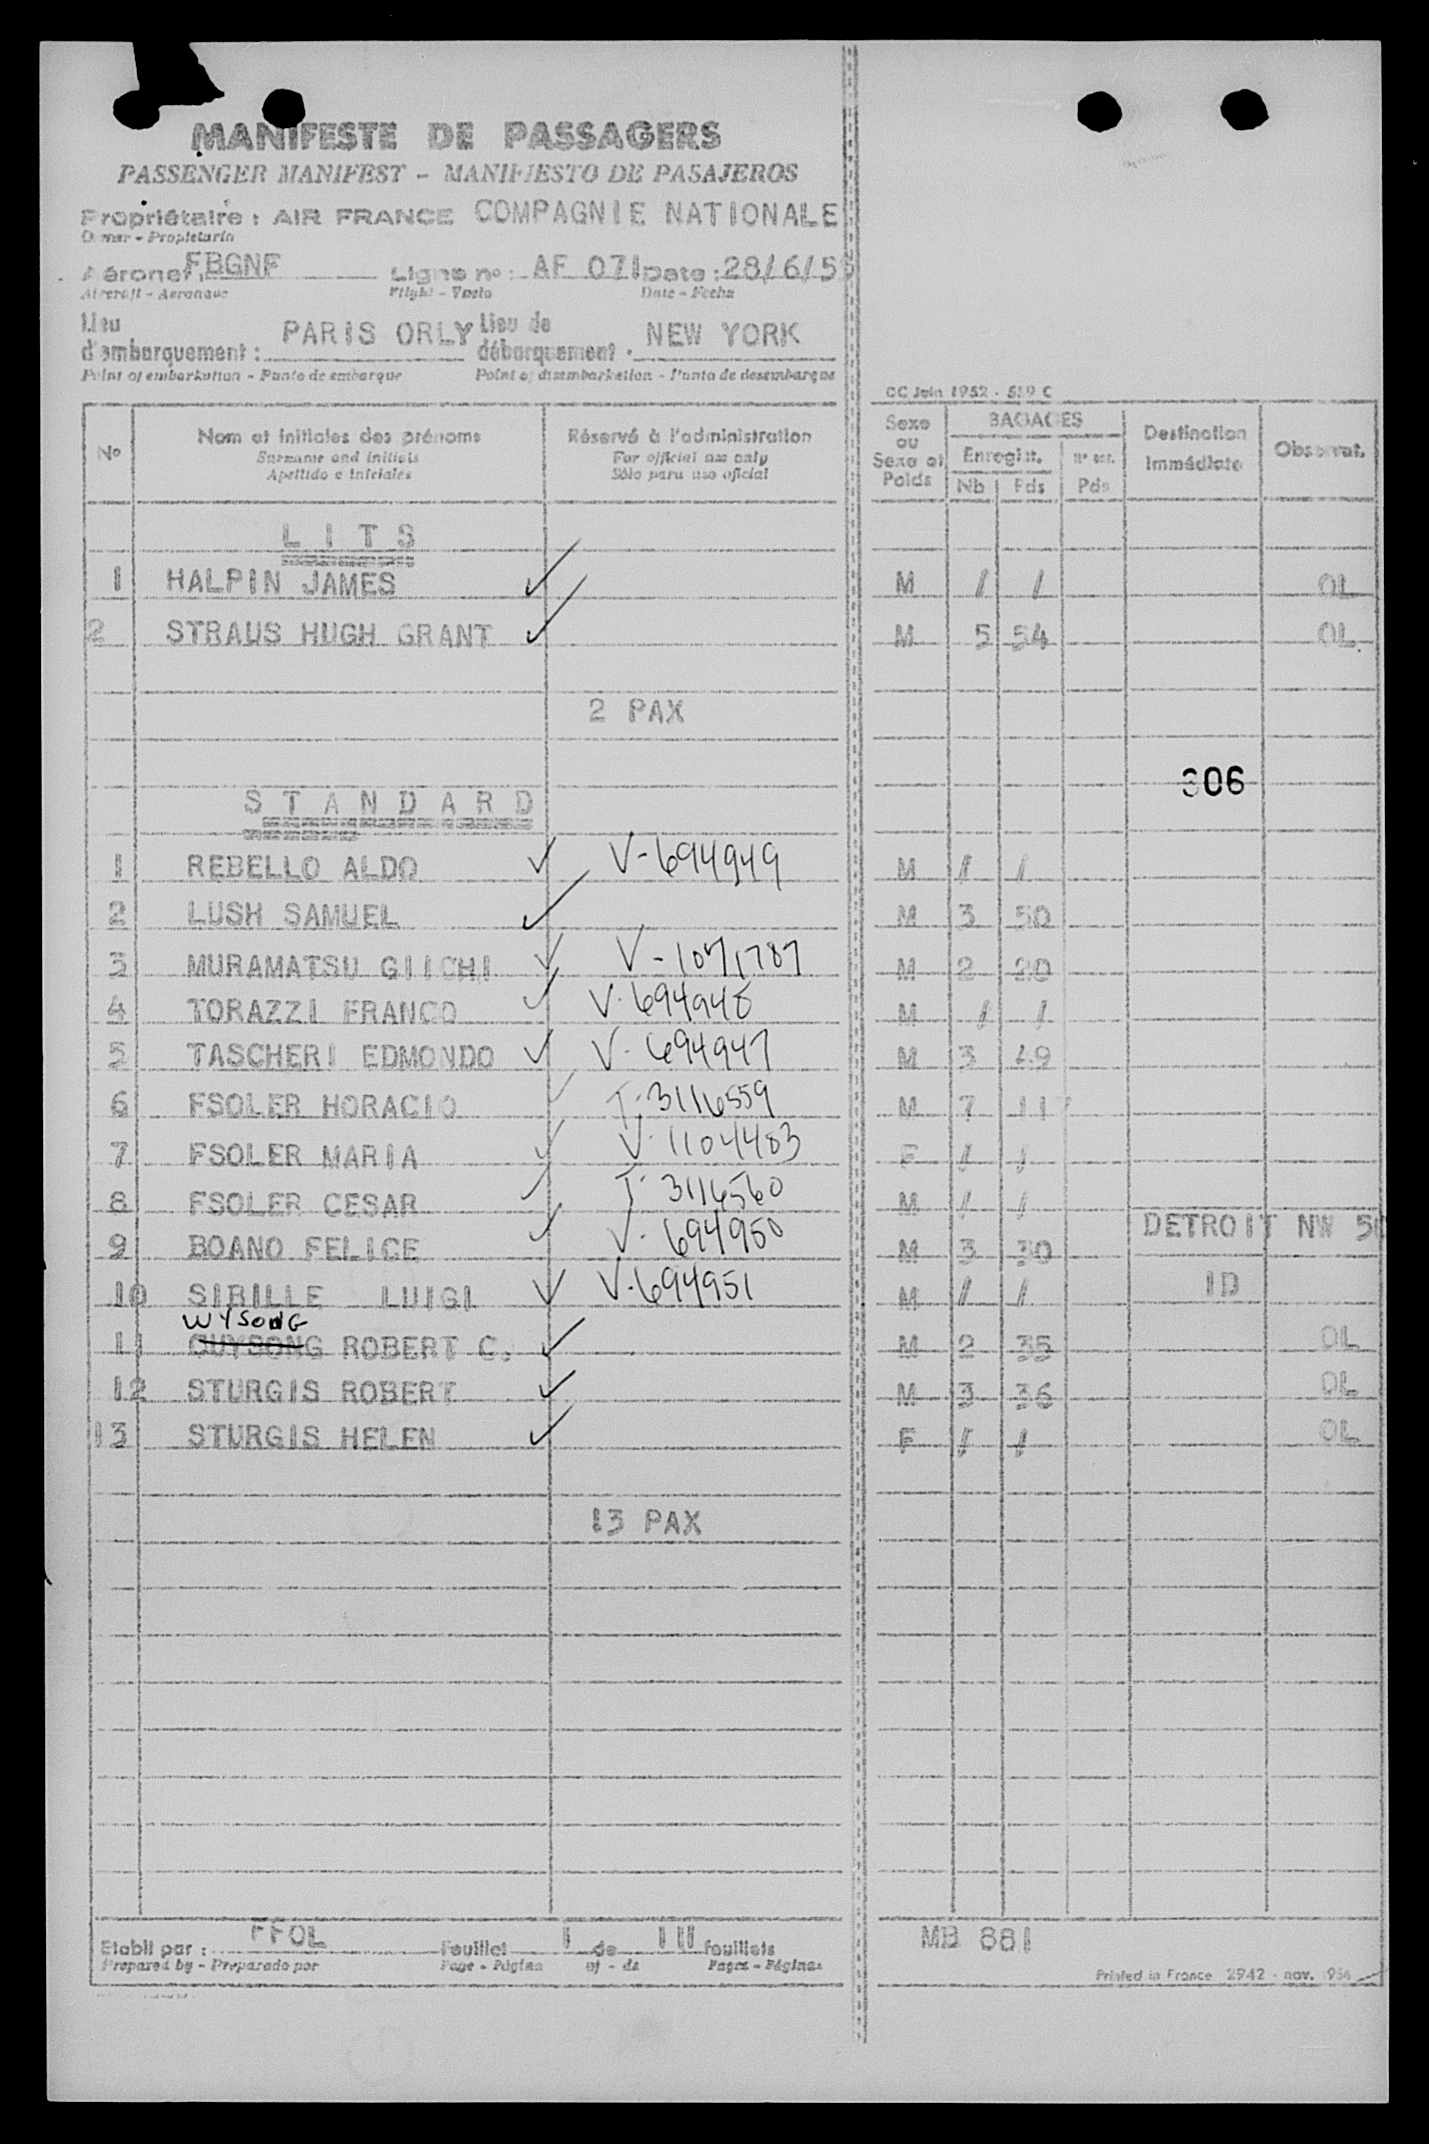 MANIFESTE DE PASSAGERS
PASSENGER MANIFEST - MANIFIESTO DE PASAJEROS
Propriétaire : AIR FRANCE COMPAGNIE NATIONALE
Owner - Propietario
Aéronef FBGNF Ligne no : AF 071 Date : 28/6/5
Aircraft - Aeronave Flight - Vuelo Date - Fecha
Lieu d'embarquement : PARIS ORLY Lieu de débarquement : NEW YORK
Point of embarkation - Punto de embarque Point of disembarkation - Punto de desembarque
CC Juin 1952 - 519 C
No Nom et initiales des prénoms Réservé à l'administration Sexe ou Sexe et Poids BAGAGES Destination Immédiate Observat.
Surname and initials For official use only Enregist.
Apellido e iniciales Sólo para uso oficial Nb Pds Pds
L I T S
1 HALPIN JAMES ✓ M / / OL
2 STRAUS HUGH GRANT ✓ M 5 54 OL
2 PAX
306
S T A N D A R D
1 REBELLO ALDO ✓ V-694949 M / /
2 LUSH SAMUEL ✓ M 3 50
3 MURAMATSU GIICHI ✓ V-1071787 M 2 20
4 TORAZZI FRANCO ✓ V-694948 M / /
5 TASCHERI EDMONDO ✓ V-694947 M 3 49
6 FSOLER HORACIO ✓ T-3116559 M 7 117
7 FSOLER MARIA ✓ V-1104483 F / /
8 FSOLER CESAR ✓ T-3116560 M / /
9 BOANO FELICE ✓ V-694950 M 3 30 DETROIT NW 50
10 SIBILLE LUIGI ✓ V-694951 M / / ID
WYSONG
11 GUYSONG ROBERT C. ✓ M 2 35 OL
12 STURGIS ROBERT ✓ M 3 36 OL
13 STURGIS HELEN ✓ F / / OL
13 PAX
Etabli par : FFOL Feuillet 1 de III feuillets MB 881
Prepared by - Preparado por Page - Página of - de Pages - Páginas
Printed in France 2942 - nov. 195